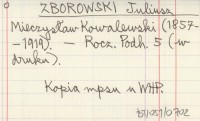 ZBOROWSKI Juliusz
Mieczysław Kowalewski (1857
-1919). — Rocz. Podh. 5 (w
druku).
Kopia mpsu u WHP.